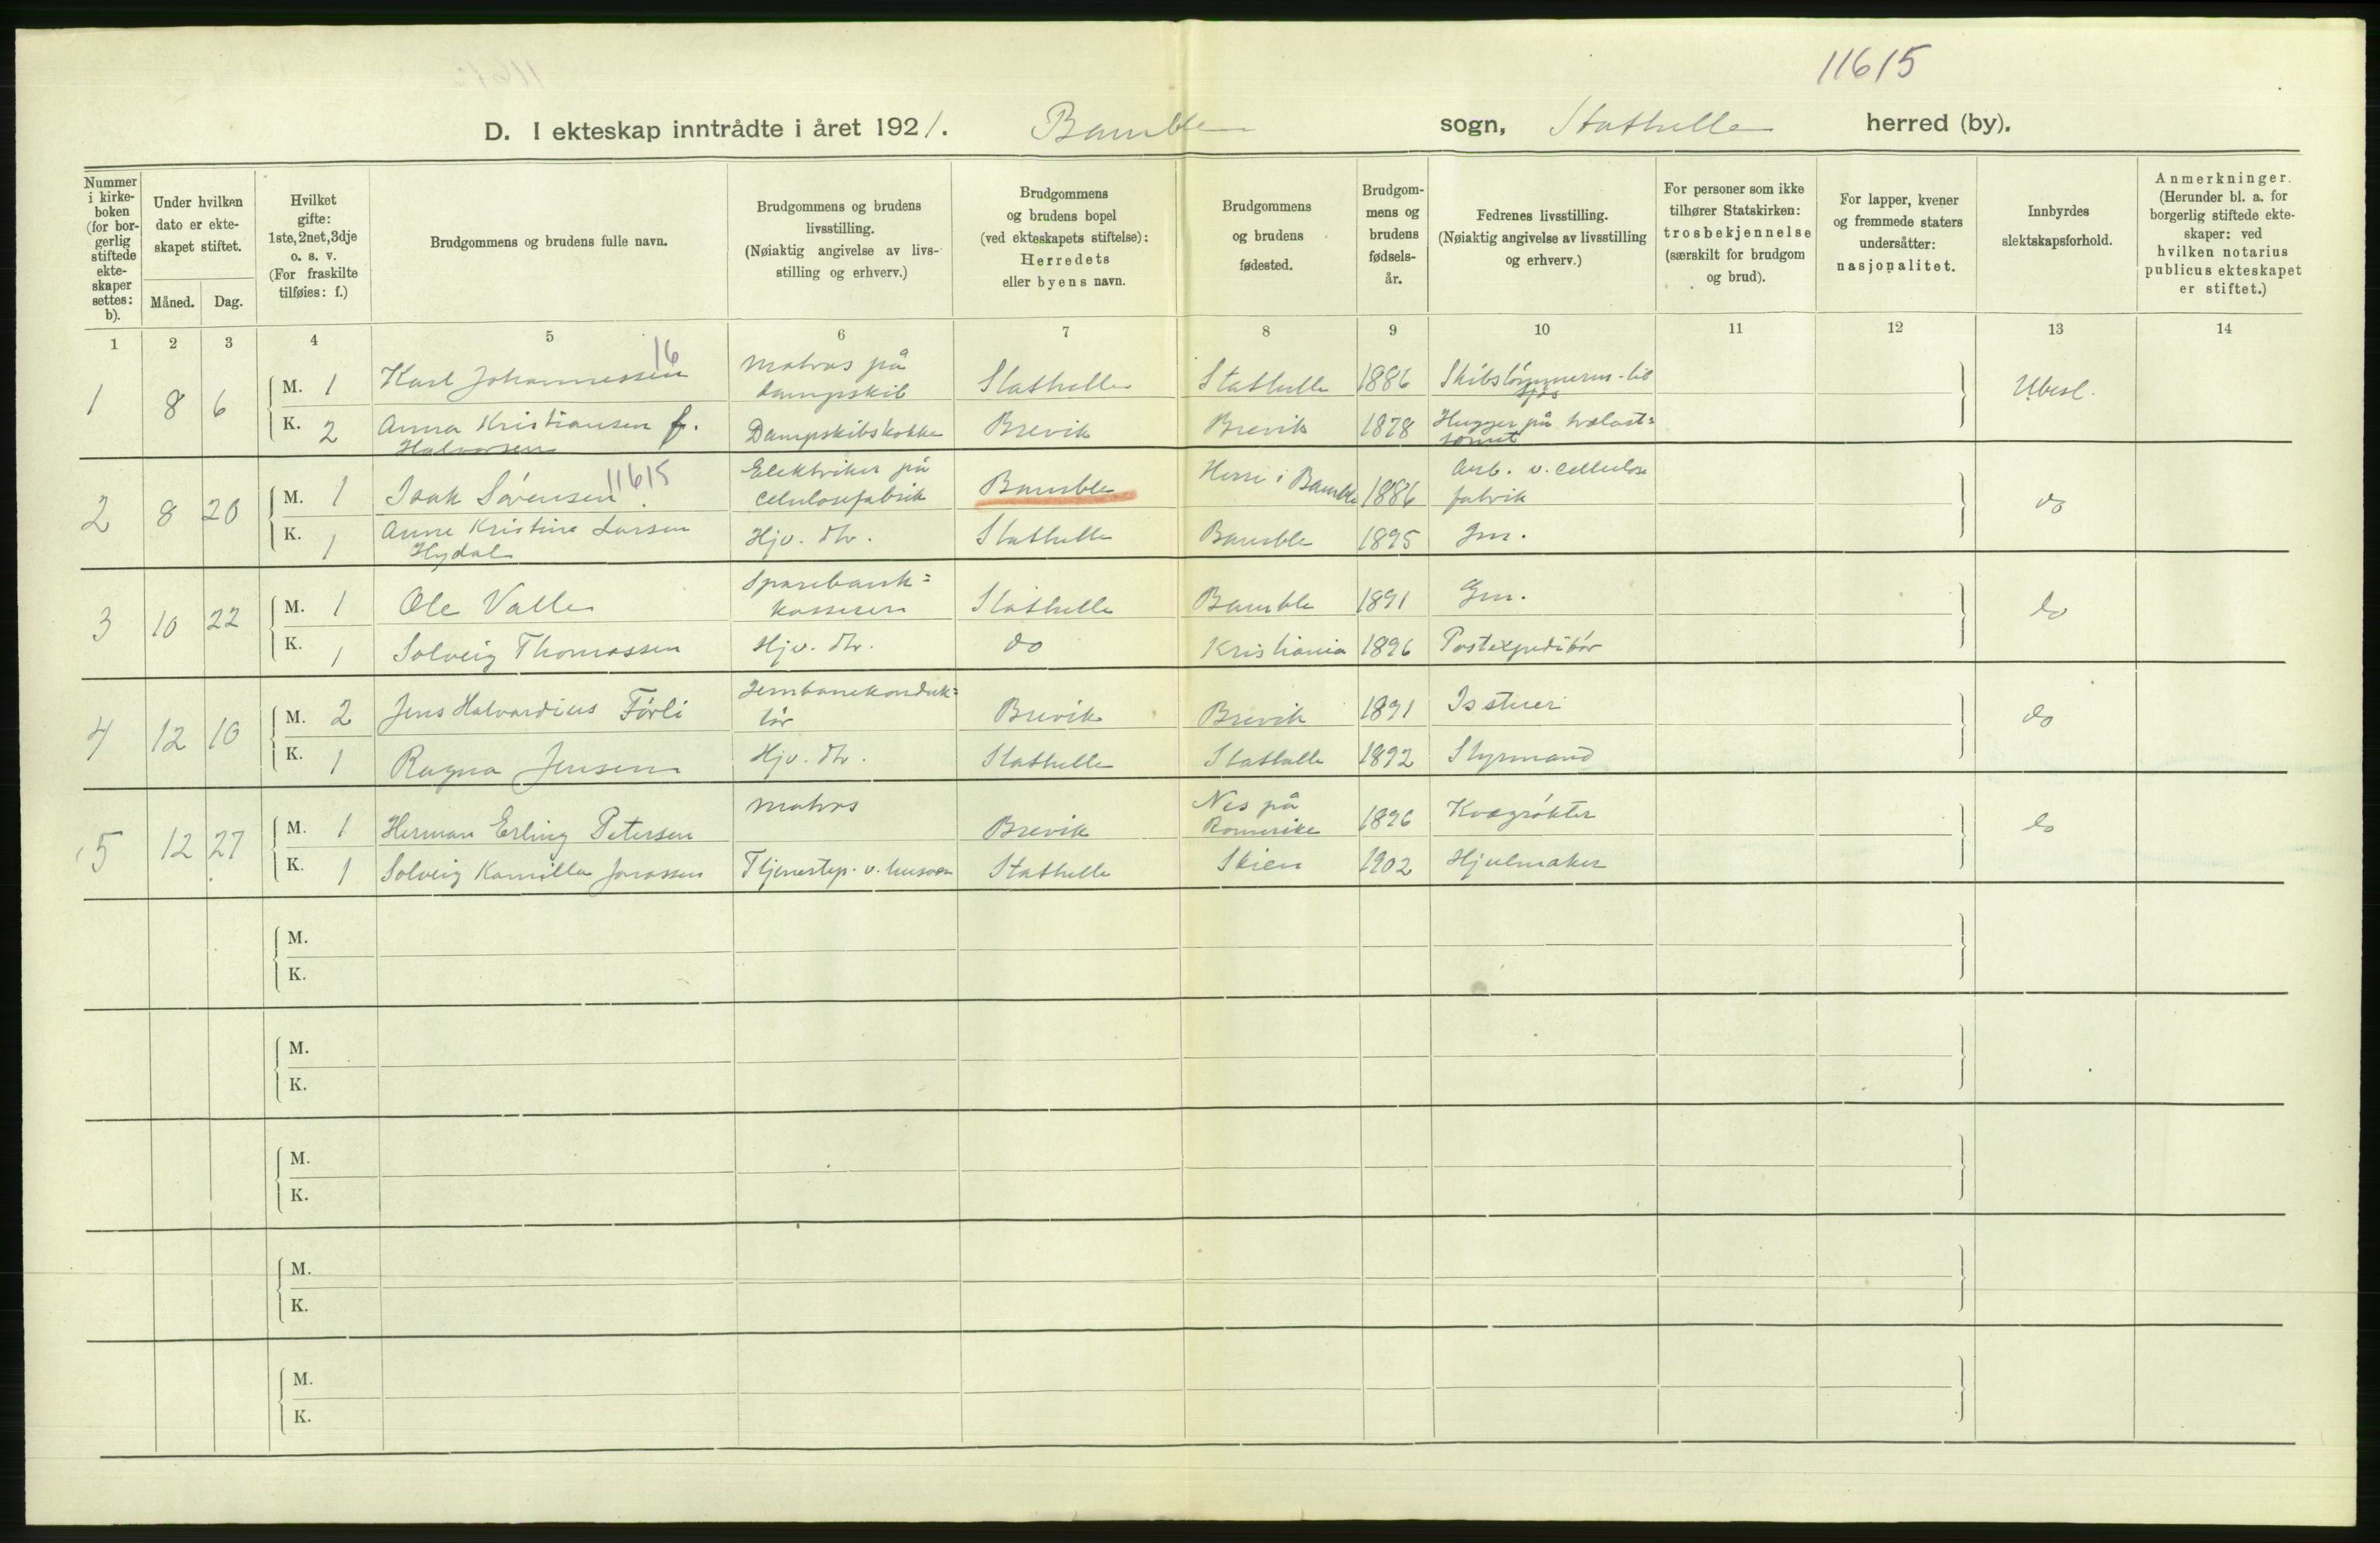 11615
D. I ekteskap inntrådte i året 1921. Bamble sogn, Stathelle herred (by).
Nummer i kirke-boken (for bor-gerlig stiftede ekte-skaper settes: b).
Under hvilken dato er ekte-skapet stiftet.
Måned. Dag.
Hvilket gifte: 1ste, 2net, 3dje o. s. v. (For fraskilte tilføies: f.)
Brudgommens og brudens fulle navn.
Brudgommens og brudens livsstilling. (Nøiaktig angivelse av livs-stilling og erhverv.)
Brudgommens og brudens bopel (ved ekteskapets stiftelse): Herredets eller byens navn.
Brudgommens og brudens fødested.
Brudgom-mens og brudens fødsels-år.
Fedrenes livsstilling. (Nøiaktig angivelse av livsstilling og erhverv.)
For personer som ikke tilhører Statskirken: trosbekjennelse (særskilt for brudgom og brud).
For lapper, kvener og fremmede staters undersåtter: nasjonalitet.
Innbyrdes slektskapsforhold.
Anmerkninger. (Herunder bl. a. for borgerlig stiftede ekte-skaper: ved hvilken notarius publicus ekteskapet er stiftet.)
1 2 3 4 5 6 7 8 9 10 11 12 13 14
16
1 8 6 M. 1 Karl Johannessen matros på dampskib Stathelle Stathelle 1886 Ubesl.
K. 2 Anna Kristiansen f. Halvorsen Dampskibskokke Brevik Brevik 1878 Hugger på trælast=
11615
2 8 20 M. 1 Isak Sørensen Elektriker på Celulosefabrik Bamble Herre i Bamble 1886 Arb. v. Cellulose fabrik do
K. 1 Anne Kristine Larsen Hydal Hjv. dtr. Stathelle Bamble 1895 Gm.
3 10 22 M. 1 Ole Valle Sparebank= kasserer Stathelle Bamble 1891 Gm. do
K. 1 Solveig Thomassen Hjv. dtr. do Kristiania 1896 Postexpeditør
4 12 10 M. 2 Jens Halvardius Førli Jernbanekonduk= tør Brevik Brevik 1891 do
K. 1 Ragna Jensen Hjv. dtr. Stathelle Stathelle 1892 Styrmand
5 12 27 M. 1 Herman Erling Petersen matros Brevik Nes på Romerike 1896 Kvægrøkter do
K. 1 Solveig Kamilla Jonassen Tjenestep. v. husven Stathelle Skien 1902 Hjulmaker
M.
K.
M.
K.
M.
K.
M.
K.
M.
K.